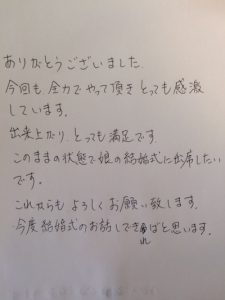 ありがとうございました.
今回も、全力でやって頂きとっても感激
しています。
出来上がり、とっても満足です。
このままの状態で娘の結婚式に出席したい
です。
これからも よろしくお願い致します。
今度結婚式のお話しできればと思います。